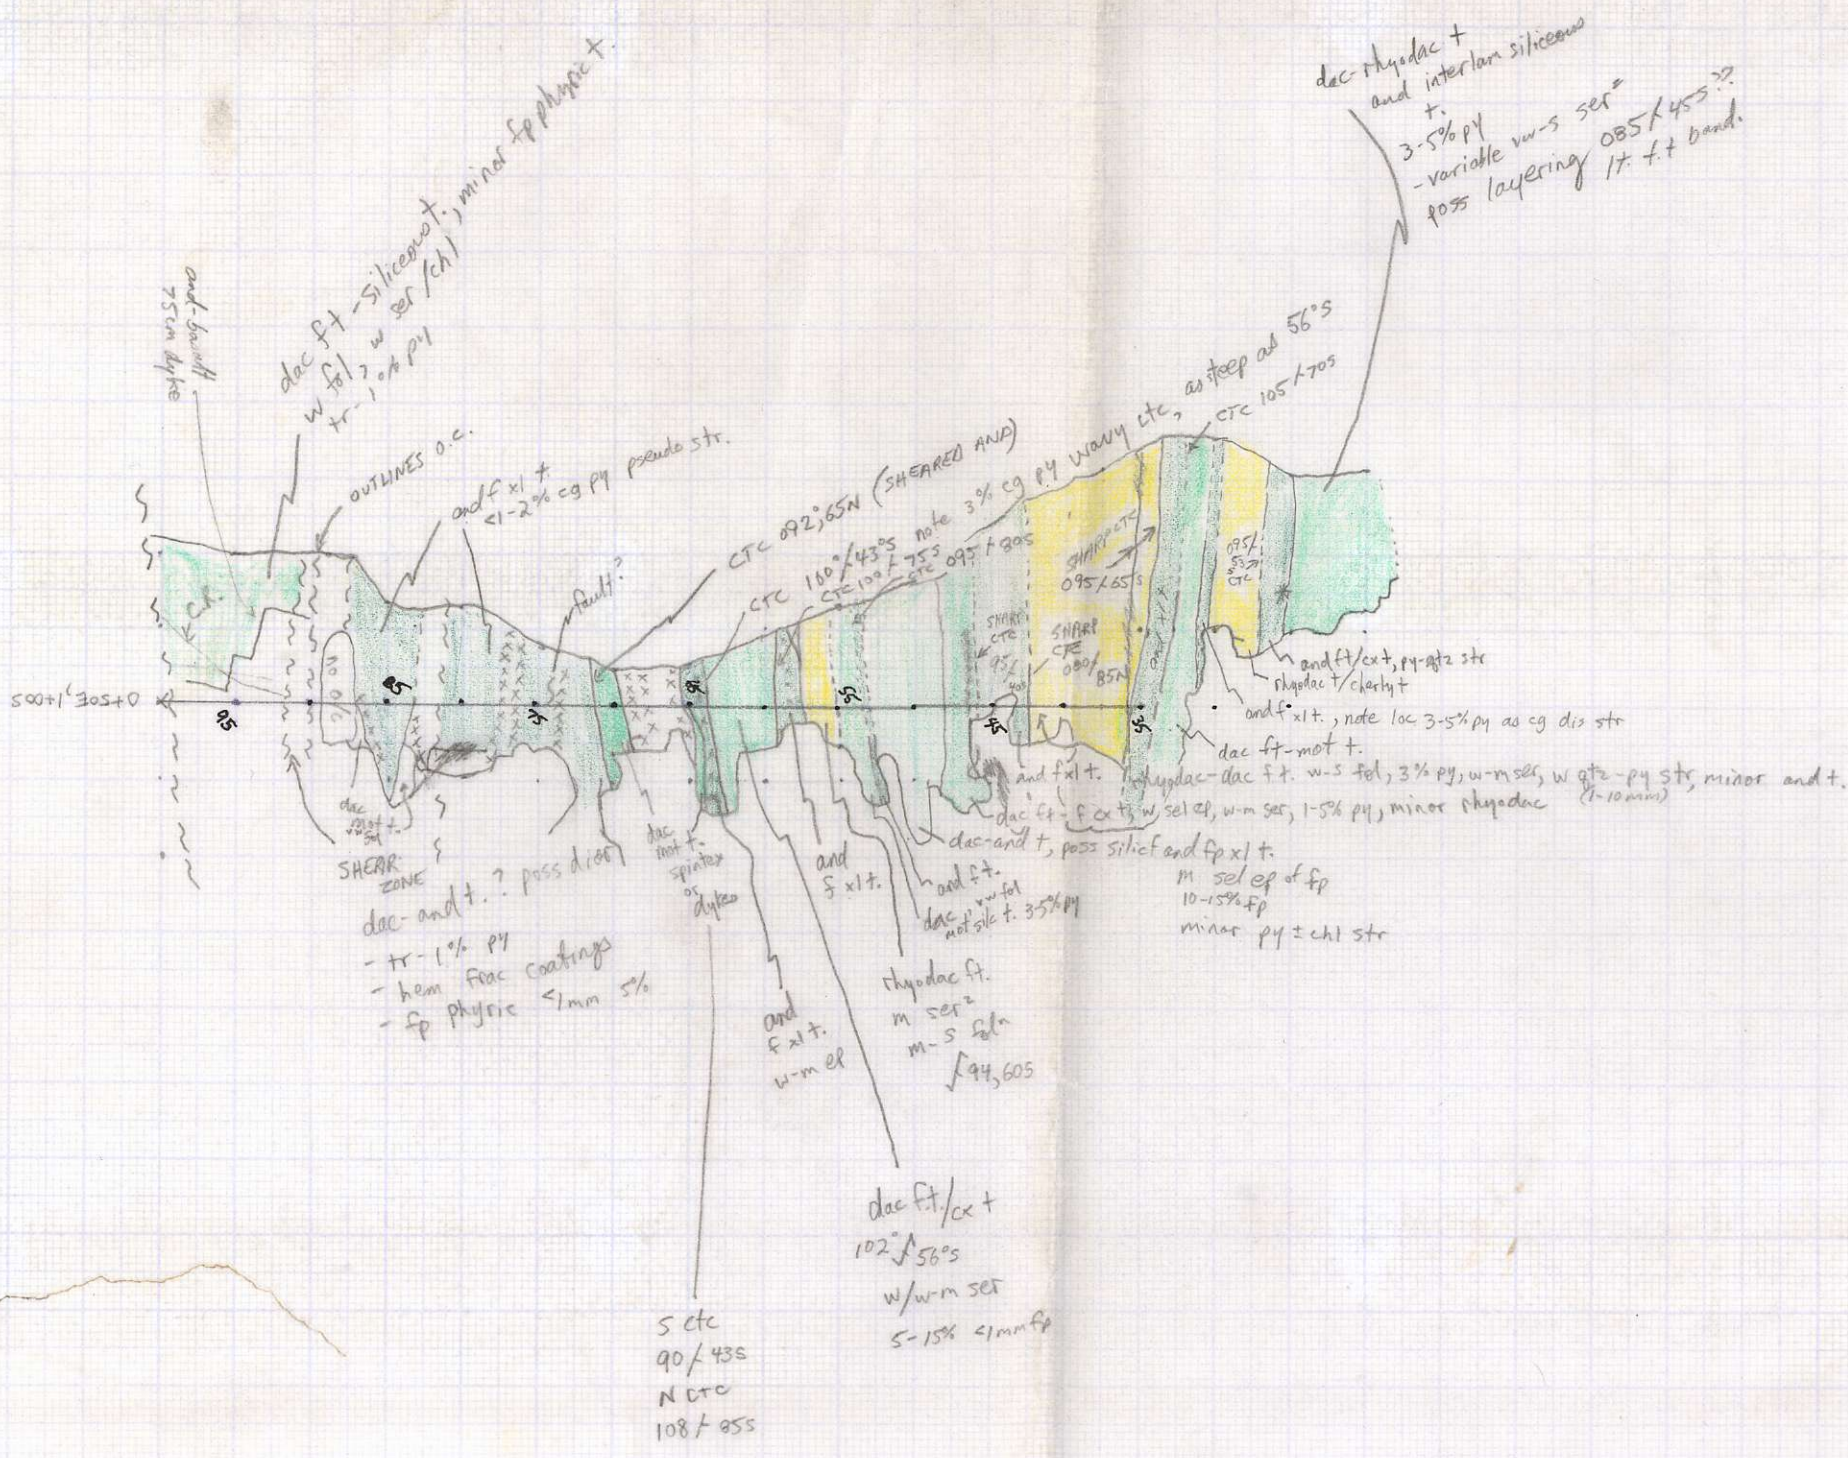 dac-rhyodac t
and interlam siliceous
t.
3-5% py
-variable vw-s ser²
poss layering 085/45S??
lt. f.t band.
and-basalt
75cm dyke
dac ft -siliceous t., minor fp phyric t.
w fol, w ser/chl
tr-1% py
OUTLINES o.c.
and f xl t
<1-2% cg py pseudo str.
fault?
CTC 092°,65N (SHEARED AND)
CTC 100°/43°S note 3% cg py wavy ctc, as steep as 56°S
CTC 100/75S
CTC 095/80S
CTC 105/70S
C.R.
NO O/C
SHARP CTC
095/65S
095/
53S
CTC
SHARP
CTC
95/
40S
SHARP
CTC
080/
85N
and f xl t
0+50E, 1+00S
95
85
75
65
55
45
35
and ft/cx t, py-qtz str
rhyodac t/cherty t
and f xl t., note loc 3-5% py as cg dis str
dac ft-mot t.
rhyodac-dac f t. w-s fol, 3% py, w-m ser, w qtz-py str, minor and t.
(1-10mm)
and fxl t.
dac ft-f cx t, w sel ep, w-m ser, 1-5% py, minor rhyodac
dac-and t, poss silicf and fp xl t.
m sel ep of fp
10-15% fp
minor py ± chl str
dac
mot t.
vw sel
SHEAR
ZONE
dac-and t.? poss dior
- tr-1% py
- hem frac coatings
- fp phyric <1mm 5%
dac
mot t.
spinifex
or
dyke
and
f xl t.
and f t.
vw fol
dac
mot silc t. 3-5% py
and
f xl t.
w-m ep
rhyodac ft.
m ser²
m-s foln
94,60S
dac f.t./cx t
102°/56°S
w/w-m ser
5-15% <1mm fp
S ctc
90/43S
N CTC
108/85S